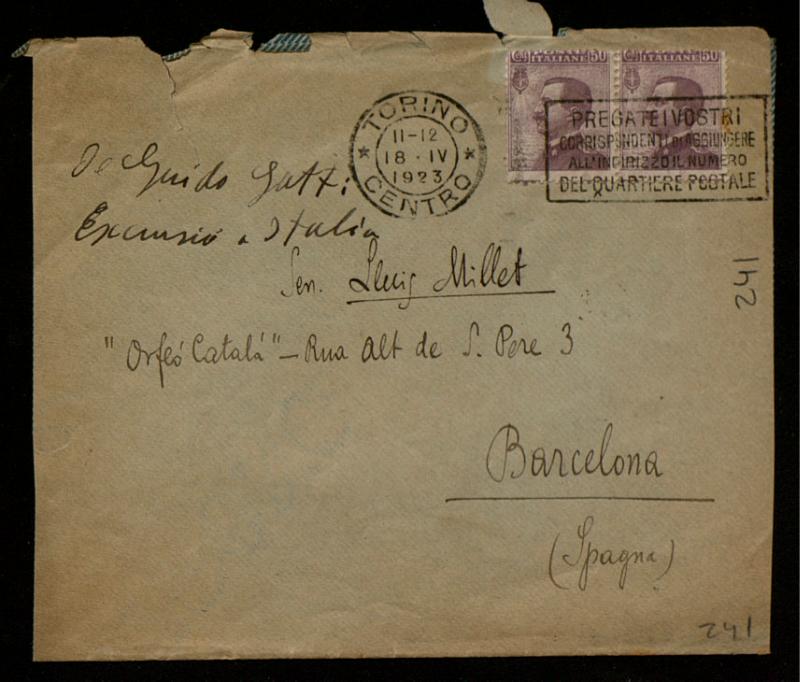 ITALIANE 50
ITALIANE 50
TORINO
11-12
18·IV
1923
CENTRO
PREGATE I VOSTRI
CORRISPONDENTI DI AGGIUNGERE
ALL'INDIRIZZO IL NUMERO
DEL QUARTIERE POSTALE
De Guido Gatti
Excursió a Italia
Sen. Lluis Millet
"Orfeó Catalá" – Rua Alt de S. Pere 3
241
Barcelona
(Spagna)
241